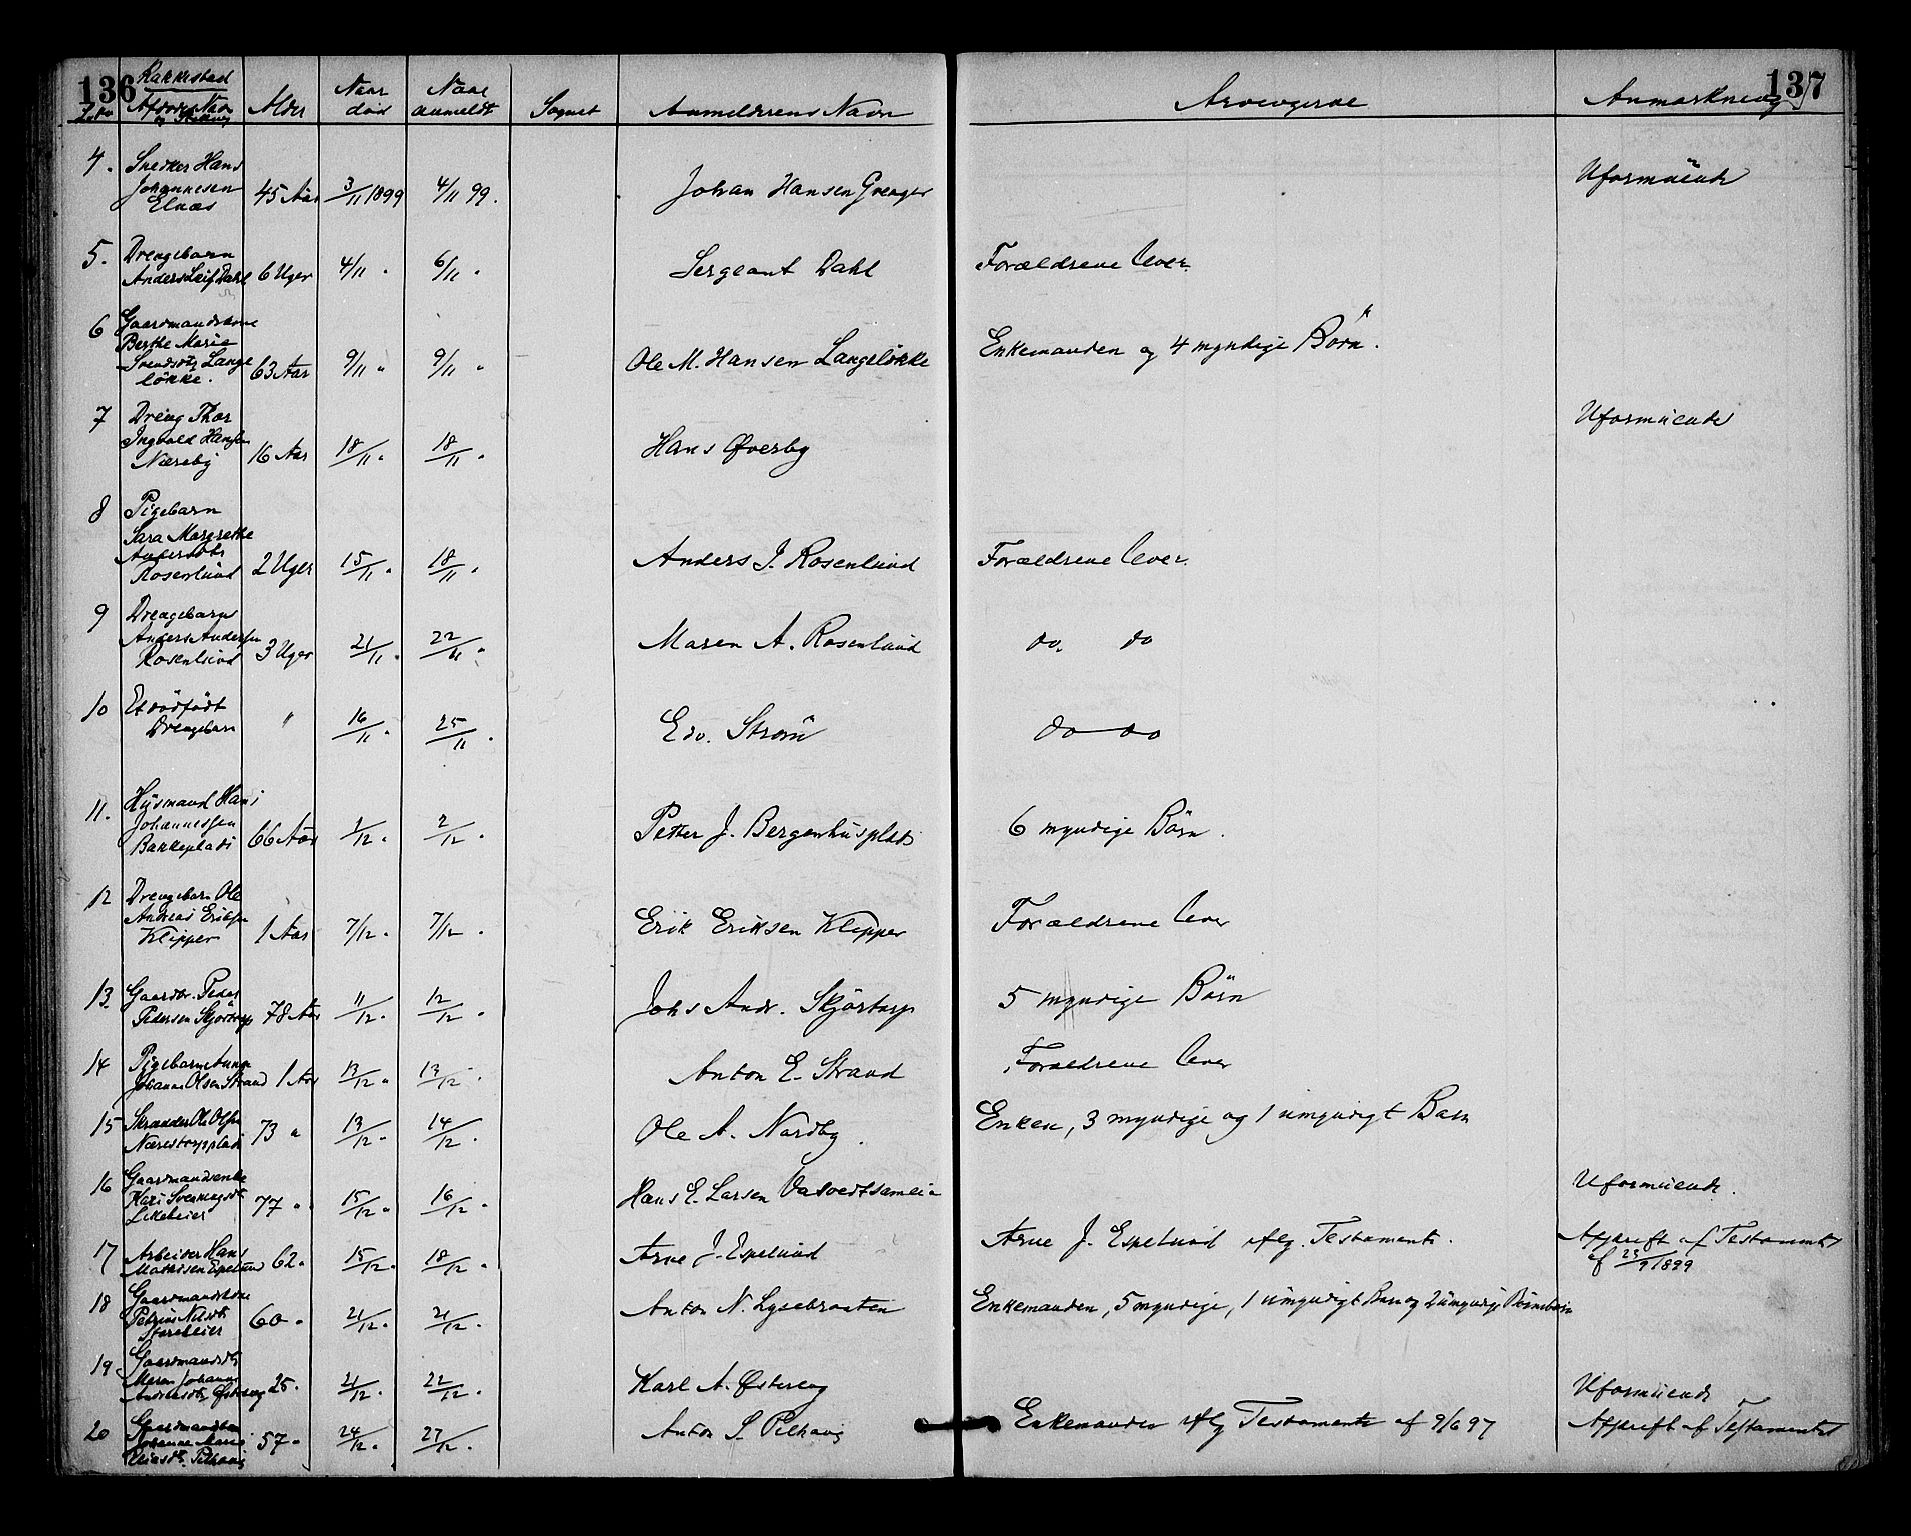 136 Rakkestad 137
L.No Afdødes Navn og Stilling Alder Naar død Naar anmeldt Sognet Anmelderens Navn Arvingerne Anmærkning
4. Snedker Hans
Johannesen
Elnæs 45 Aar 3/11 1899 4/11 99. Johan Hansen Uformuende
5. Drengebarn
Anders Leif Dahl 6 Uger 4/11 " 6/11 " Sergeant Dahl Forældrene lever.
6 Gaardmandskone
Berthe Marie
Svendsdtr Lange
løkke. 63 Aar 9/11 " 9/11 " Ole M. Hansen Langeløkke Enkemanden og 4 myndige Børn.
7 Dreng Thor
Ingvald Hansen
Næreby 16 Aar 18/11 " 18/11 " Hans Øverby Uformuende
8 Pigebarn
Sara Margrethe
Andersdtr
Rosenlund 2 Uger 15/11 " 18/11 " Anders J. Rosenlund Forældrene lever.
9 Drengebarn
Anders Andersen
Rosenlund 3 Uger 21/11 " 22/11 " Maren A. Rosenlund do. do
10 Et dødfødt
Drengebarn " 16/11 " 25/11 " Edv. Strøm do do
11. Husmand Hans
Johannessen
Bakkeplads 66 Aar 1/12 " 2/12 " Petter J. Bergenhusplads 6 myndige Børn.
12 Drengebarn Ole
Andreas Eriksen
Klipper 1 Aar 7/12 " 7/12 " Erik Eriksen Klipper Forældrene lever
13. Gaardbr. Peder
Pedersen Skjørtorp 78 Aar 11/12 " 12/12 " Johs Andr. Skjørtorp 5 myndige Børn
14 Pigebarn Anna
Johanne Olsen Strand 1 Aar 13/12 " 13/12 " Anton E. Strand Forældrene lever
15 Skrædder Ole Olsen
Nærestorpplads 73 " 13/12 " 14/12 " Ole A. Nordby. Enken, 3 myndige og 1 umyndigt Barn
16 Gaardmandsenke
Kari Svenningsdtr
77 " 15/12 " 16/12 " Hans E. Larsen Uformuende.
17 Arbeider Hans
Mathisen Espelund 62 " 15/12 " 18/12 " Arne J. Espelund Arne J. Espelund iflg. Testamente. Afskrift af Testamentet
af 23/9 1899
18 Gaardmandskone
Petrine Nilsdtr
Storeheier 60 " 21/12 " 21/12 " Anton N. Lysebraaten Enkemanden, 5 myndige, 1 umyndigt Barn og 2 umyndige Børnebørn
19 Gaardmandsdtr
Maren Johanne
Andersdtr Østereng 25. 21/12 " 22/12 " Karl A. Østereng Uformuende
20 Gaardmandskone
Johanne Marie
57 " 24/12 " 27/12 " Anton S. Pilhaug Enkemanden iflg Testamente af 9/6 97 Afskrift af Testamentet